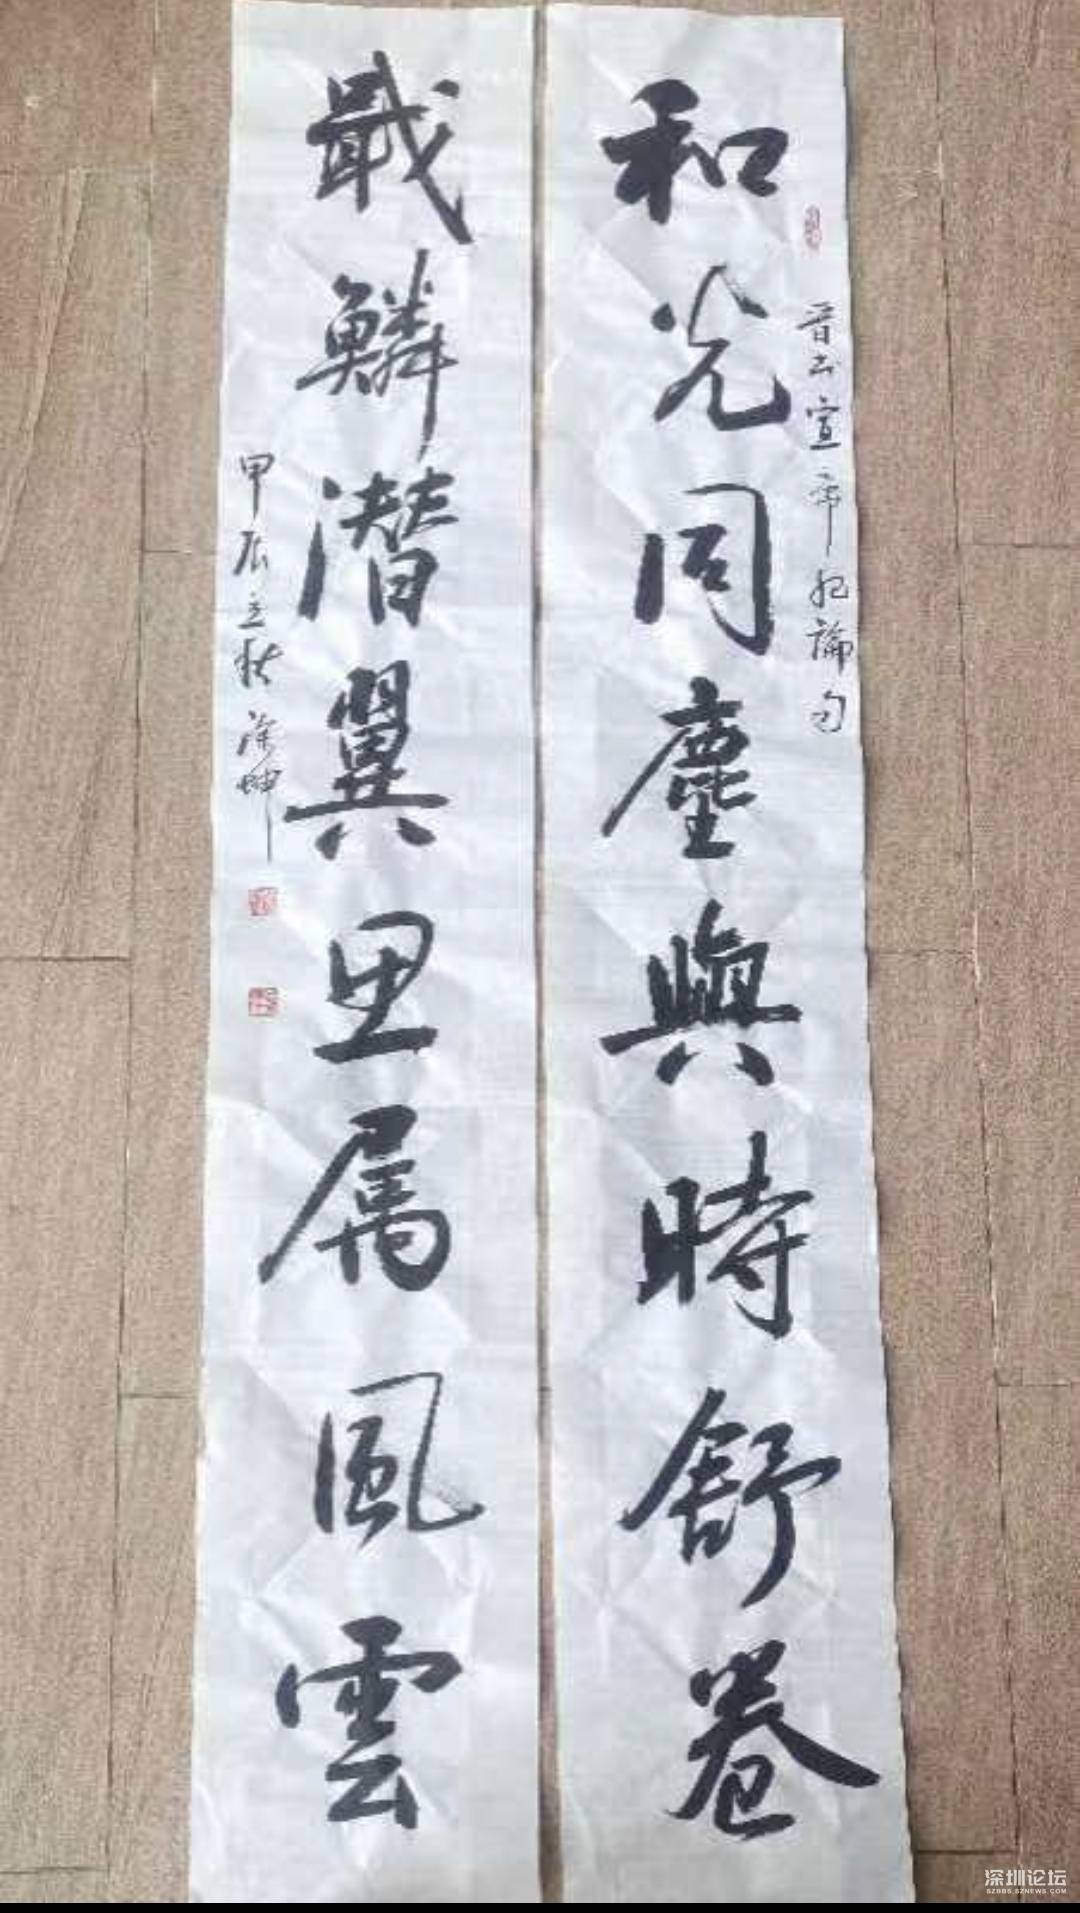 晋书宣帝纪論句
和光同塵與時舒卷
戢鱗潜翼思属風雲
甲辰立秋 涂坤
深圳论坛
SZBBS.SZNEWS.COM